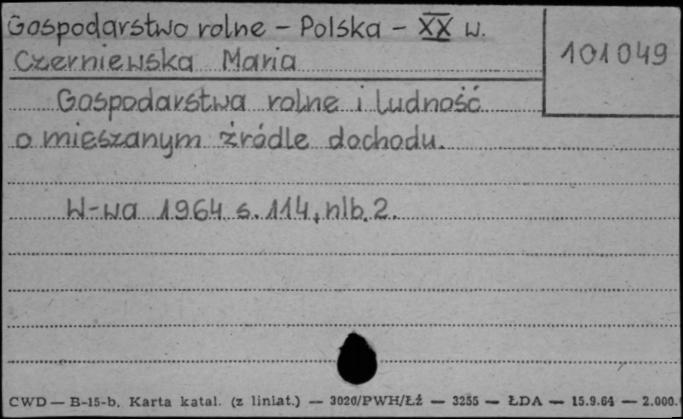 Gospodarstwo rolne – Polska – XX w.
101049
Czerniewska Maria
Gospodarstwa rolne i ludność
o mieszanym źródle dochodu.
W-wa 1964 s. 114, nlb. 2.
CWD — B-15-b. Karta katal. (z liniat.) — 3020/PWH/Łź — 3255 — ŁDA — 15.9.64 — 2.000.